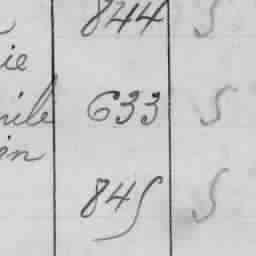 844 S
ie
nile 633 S
in
845 S